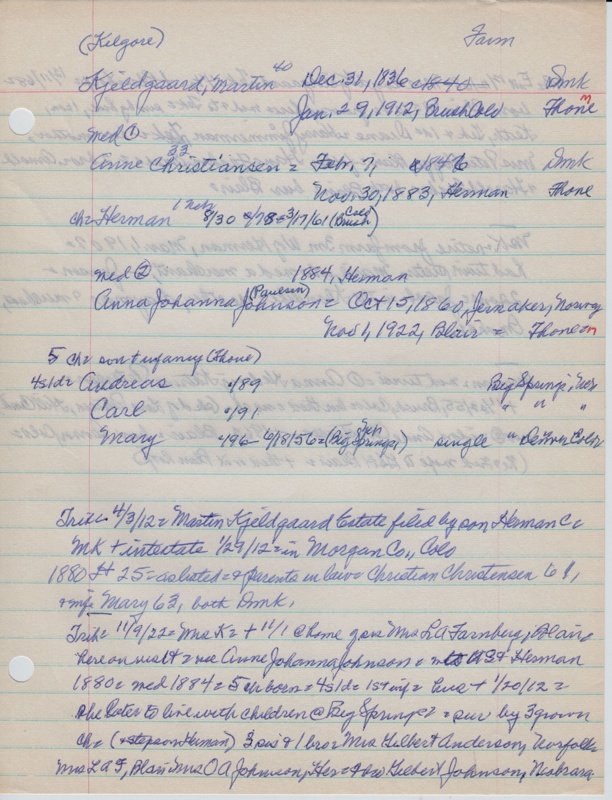 (Kilgore) Farm
Kjeldgaard, Martin 40 Dec. 31, 1836 c1840 Dmk
Jan. 29, 1912, Brush Colo Thone m
med ①
Anne Christiansen = 33 Feb. 7, c1846 Dmk
Nov. 30, 1883, Herman Thone
ch = Herman 1 Neb 8/30 c/78 = 3/17/61 (Brush Colo)
med ② 1884, Herman
Anna Johanna Johnson (Paulsen) = Oct 15, 1860, Norway
Nov 1, 1922, Blair = Thone m
5 ch = son + infancy (Thone)
4s1d = Andreas c/89 Big Springs, Neb
Carl c/91 " " "
Mary c/96 - 4/18/56 = (Big Springs, Neb) single " Denver Colo
Trib = 4/3/12 = Martin Kjeldgaard Estate filed by son Herman C =
MK + intestate 1/29/12 = in Morgan Co., Colo
1880 H 25 = as listed = & parents in law = Christian Christensen 61,
& wife Mary 63, both Dmk.
Trib = 11/9/22 = Mrs K = + 11/1 @ home of Mrs L A Farnberg, Blair
here on visit = nee Anne Johanna Johnson = to US & Herman
1880 = med 1884 = 5 ch born = 4s1d = 1st inf = hus + 1/20/12 =
she later to live with children @ Big Springs = sur by 3 grown
ch = (& stepson Herman) 3 sis & 1 bro Mrs Gilbert Anderson, Norfolk
Mrs L A F, Blair Mrs O A Johnson, Her = & bro Gilbert Johnson, Niobrara